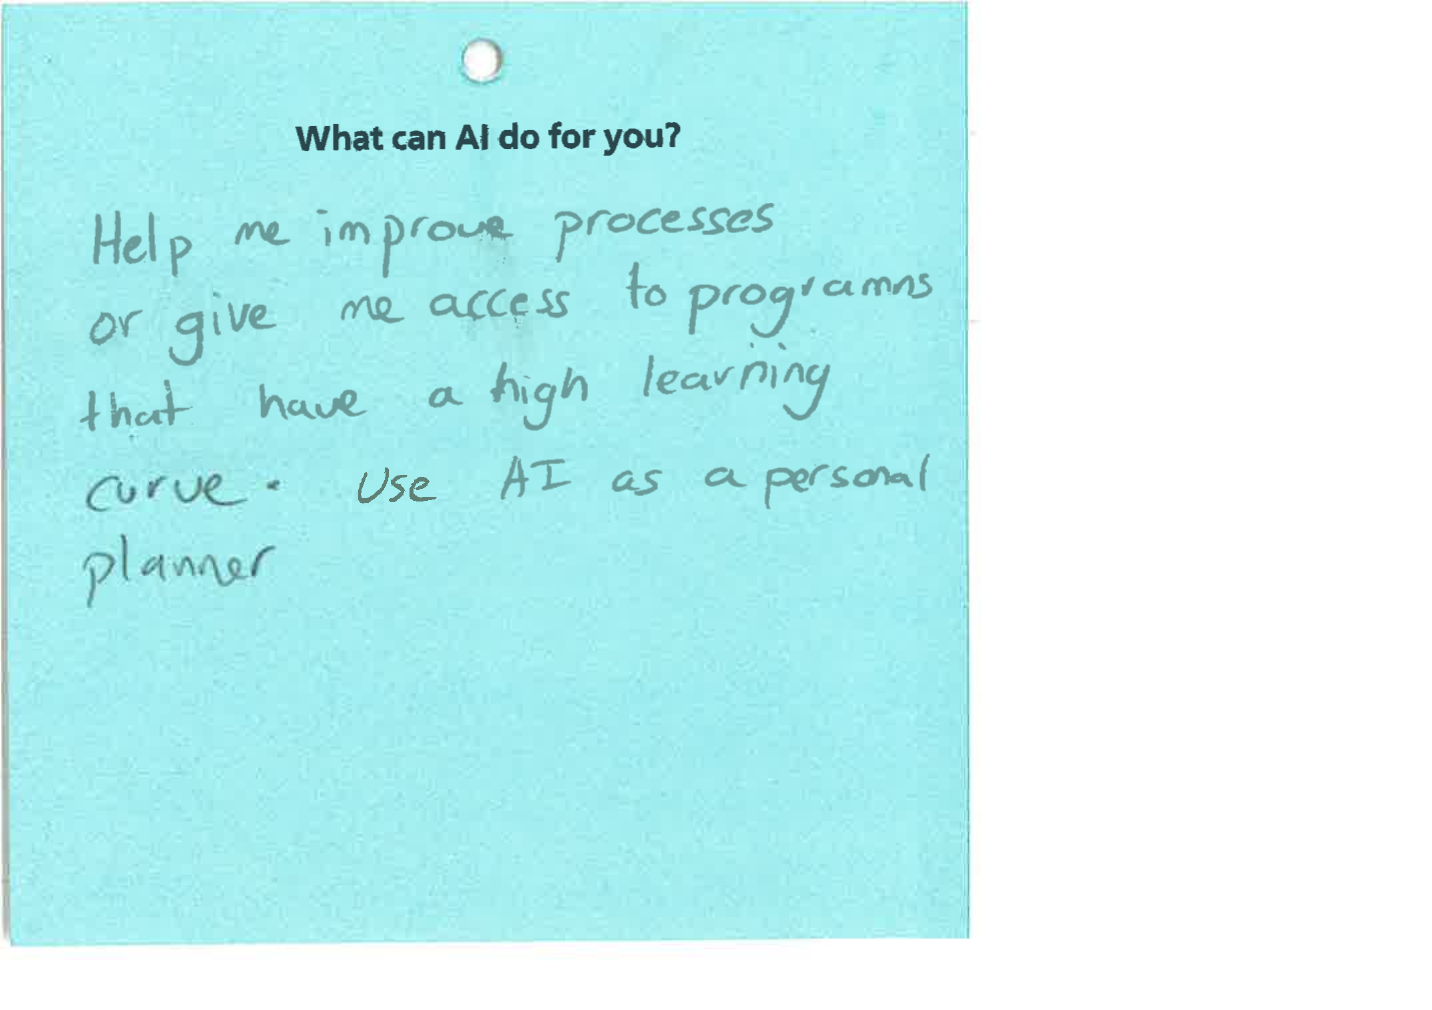 What can AI do for you?
Help me improve processes
or give me access to programns
that have a high learning
curve. Use AI as a personal
planner